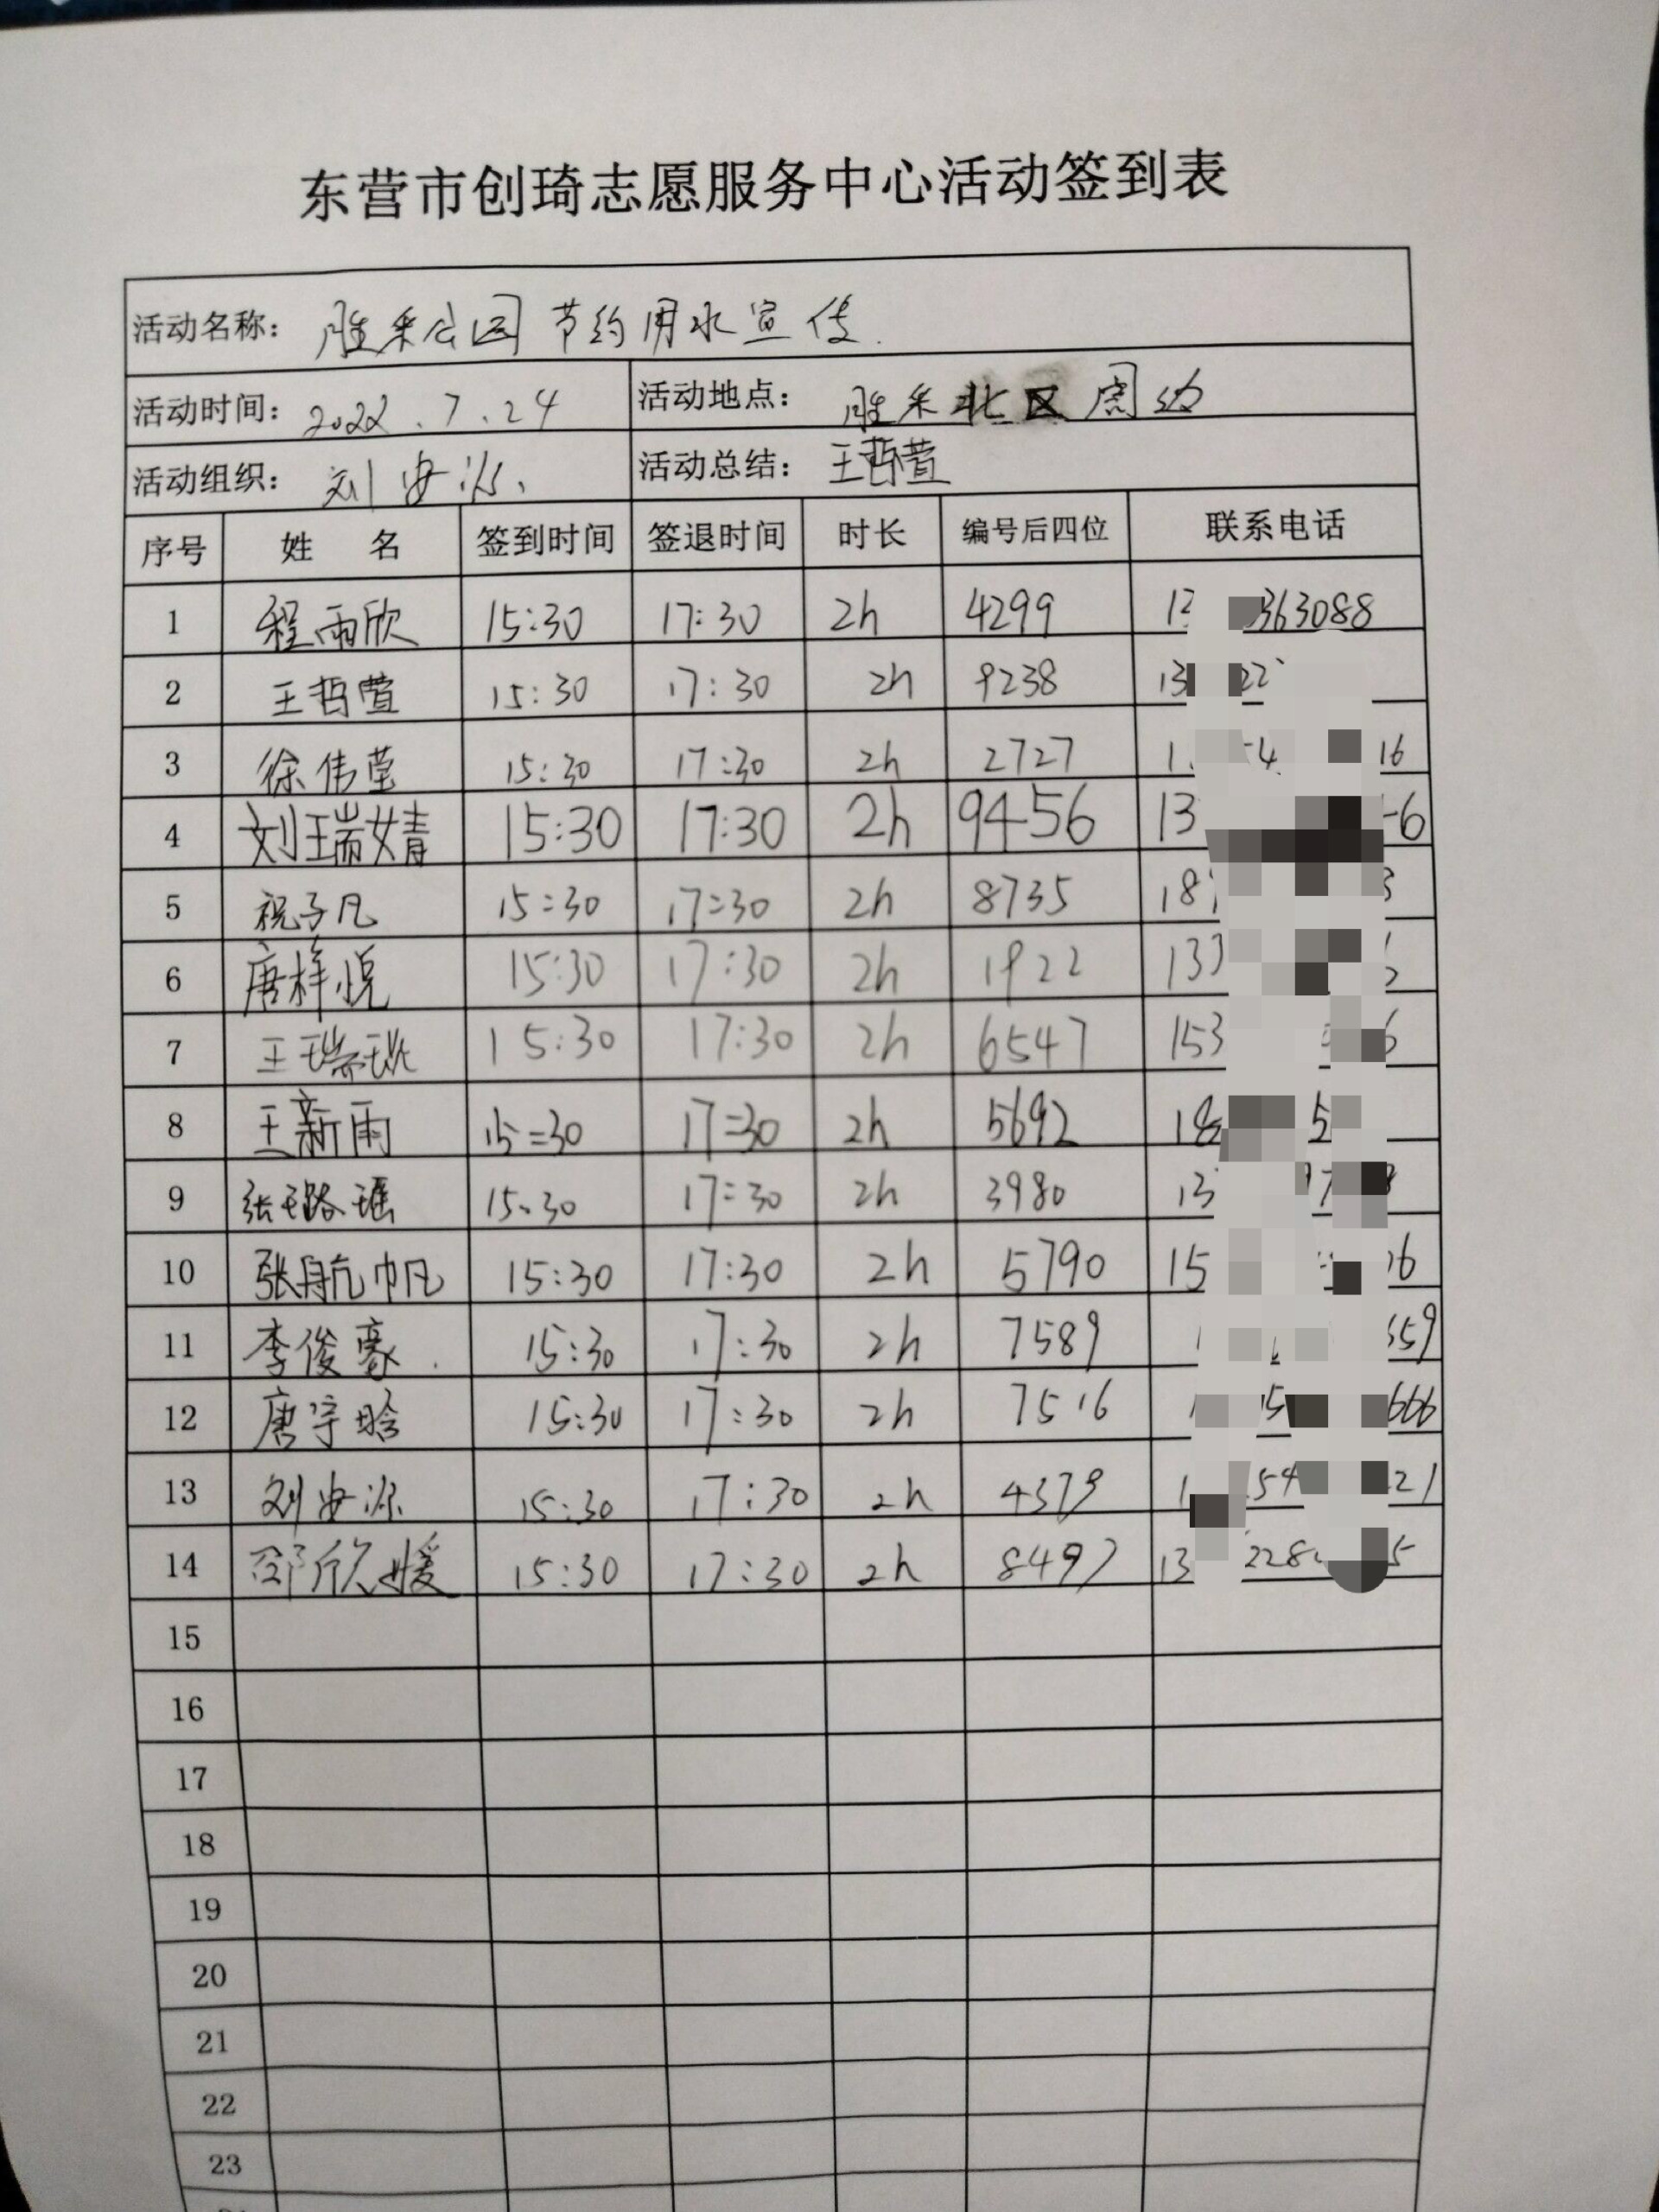 东营市创琦志愿服务中心活动签到表
活动名称: 胜采公园节约用水宣传.
活动时间: 2022.7.24 活动地点: 胜采北区周边
活动组织: 刘安源 活动总结: 王哲萱
序号 姓 名 签到时间 签退时间 时长 编号后四位 联系电话
1 程雨欣 15:30 17:30 2h 4299 363088
2 王哲萱 15:30 17:30 2h 9238 13
3 徐伟莹 15:30 17:30 2h 2727 16
4 刘瑞婧 15:30 17:30 2h 9456 13
5 祝子凡 15:30 17:30 2h 8735 18
6 唐梓悦 15:30 17:30 2h 1922 133
7 王瑞珧 15:30 17:30 2h 6547 153
8 王新雨 15:30 17:30 2h 5692 18 5
9 张璐瑶 15:30 17:30 2h 3980 13
10 张航帆 15:30 17:30 2h 5790 15
11 李俊豪 15:30 17:30 2h 7589 59
12 唐宇晗 15:30 17:30 2h 7516 666
13 刘安源 15:30 17:30 2h 4379 54 21
14 邵欣媛 15:30 17:30 2h 8497 13 228 5
15
16
17
18
19
20
21
22
23